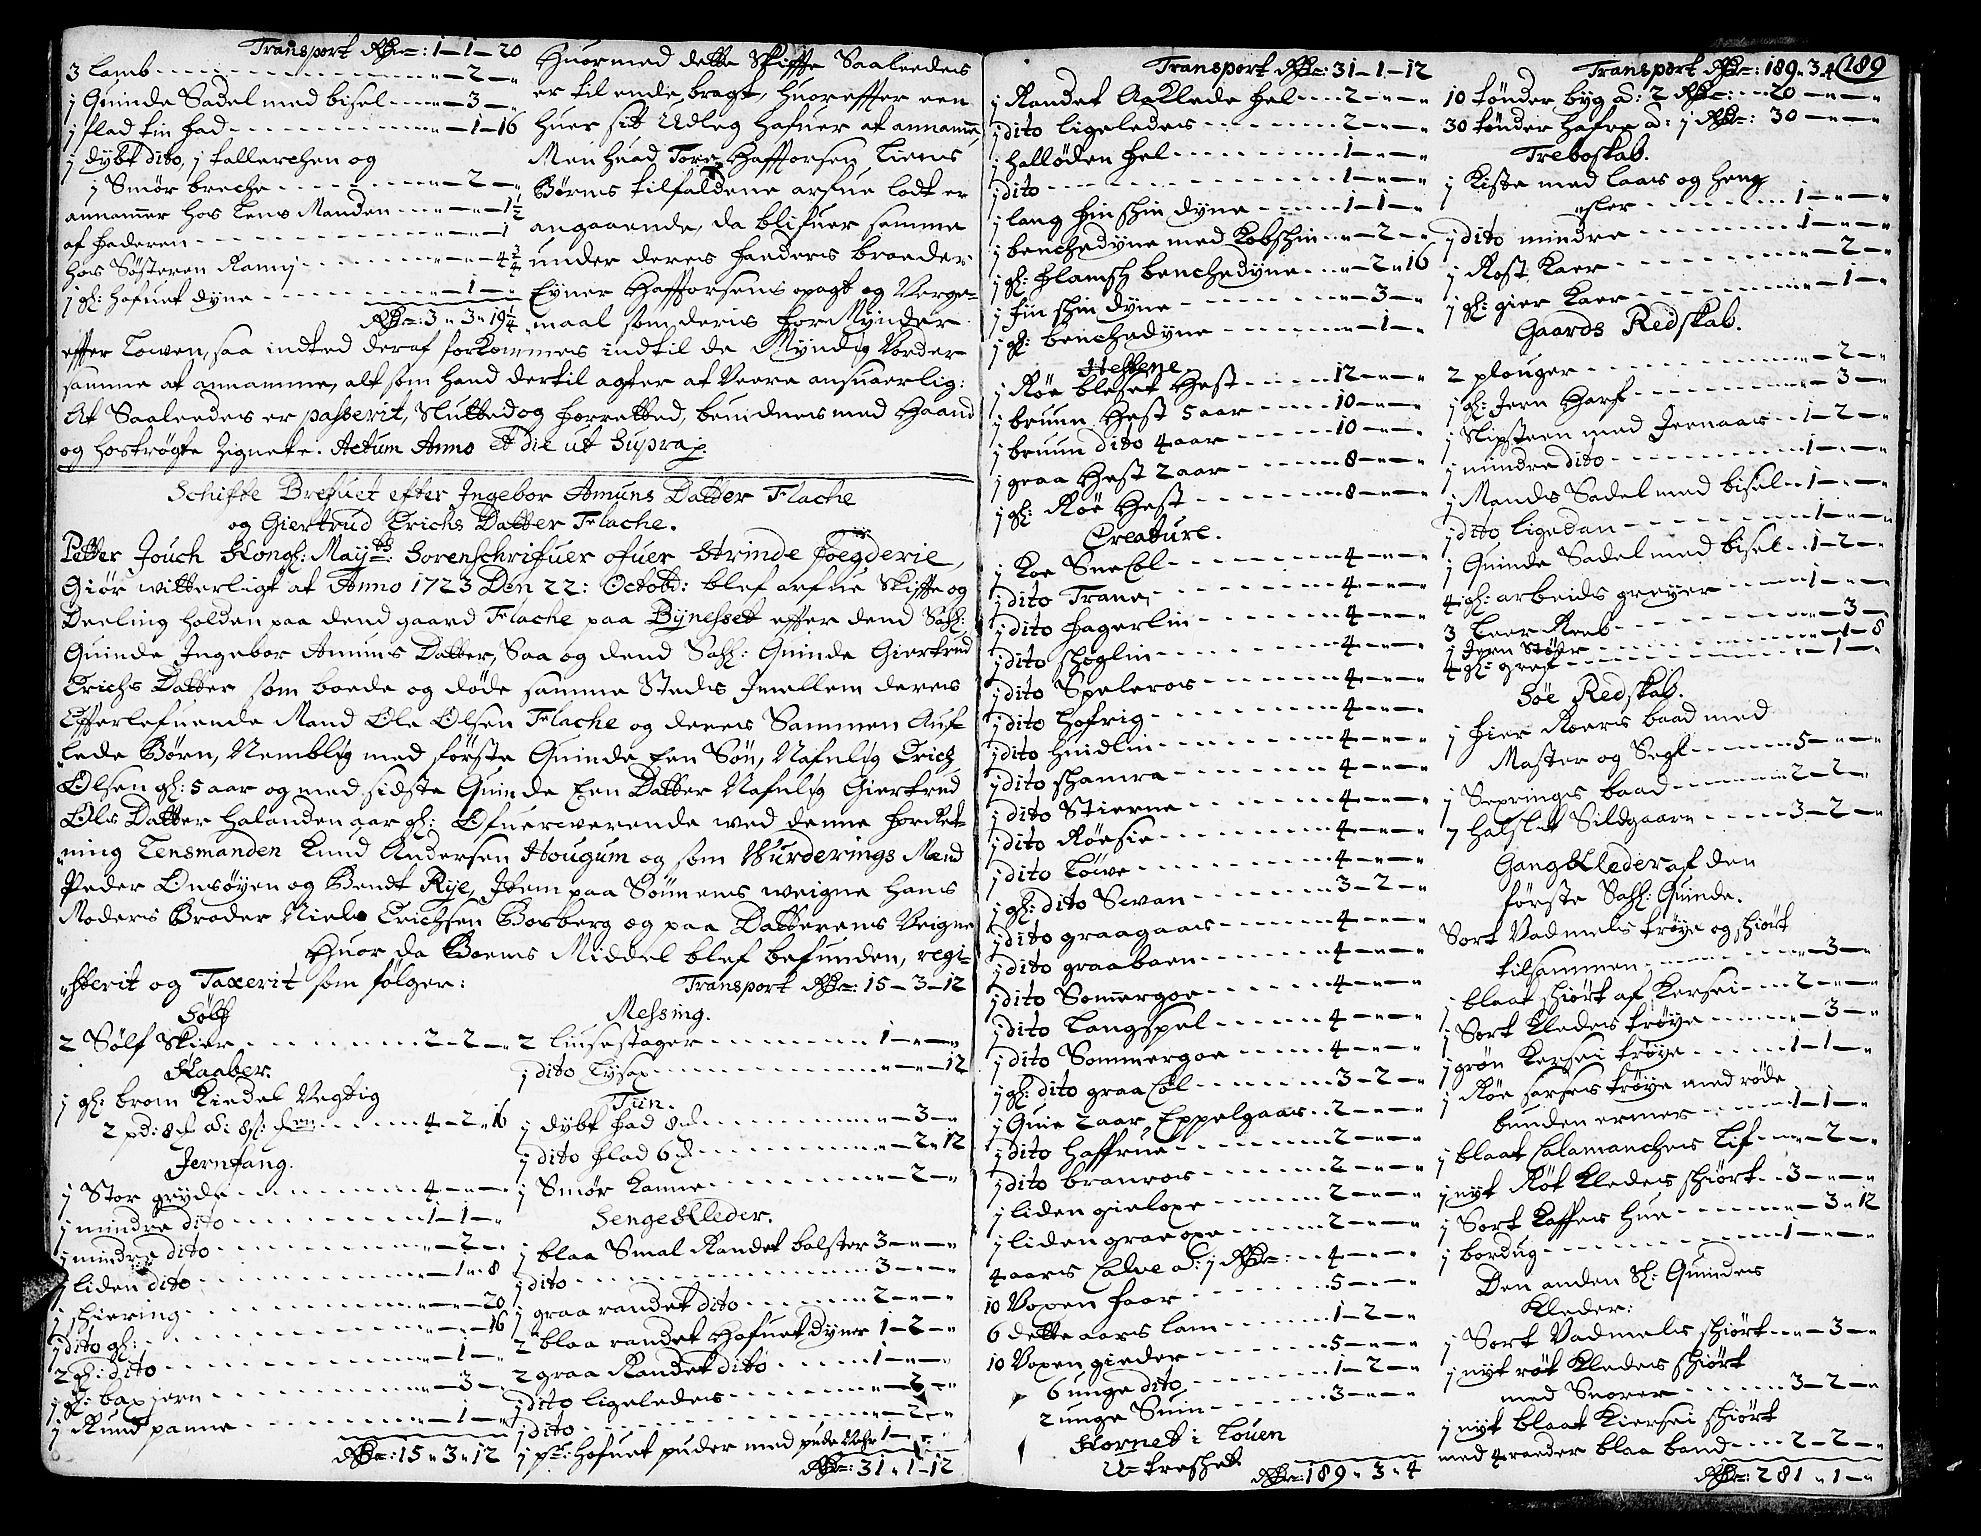 Transport Rdr: 1-1-20
3 Lamb - 2 -
1 Quinde Sadel med bisel - 3 -
1 flad tin fad - 1-16
1 dybt dito, 1 tallerchen og
1 Smör breche - 2 -
annammer hos Lens Manden - 1½
af faderen - 1
hos Søsteren Ranni - 4¾
1 gl: hofuet dyne - 1 -
Rdr: 3-3-19¼
Huormed dette Skiffte Saaleedes
er til ende bragt, huorefter een
huer sit Udleg hafuer at annamme,
Men huad Tore Hafforsen Liens
Børns tilfaldene arfue lodt er
angaaende, da blifuer samme
under deres faders broeder
Eyner Haffforsens opagt og Verge-
maal som deris forMynder
effter Lowen, saa indted deraf forkommes indtil de Myndig Vorder
samme at annamme, alt som hand dertil agter at Veere ansuaerlig:
At Saaleedes er passerit, Slutted og forretted, beuidnes med Haand
og hoströgte Zignete. Actum Anno et die ut Supra
Schifte Brefuet efter Ingebor Amuns Datter Flache
og Giertrud Erichs Datter Flache.
Petter Jouch Kongl: Mayts: Sorenschrifuer ofuer Strinde foegderie,
Giör witterligt at Anno 1723 Den 22: Octobr: blef arfue Skiffte og
Deeling holden paa dend gaard Flache paa Bynesset effter dend Sahl:
Quinde Ingebor Amuns Datter, Saa og dend Sahl: Quinde Giertrud
Erichs Datter som boede og døde samme Steds Jmellem deres
Efterlefuende Mand Ole Olsen Flache og deres Sammen Auf-
lede Børn, Nemblig med förste Quinde Een Sön, Nafnlig Erich
Olsen gl: 5 aar og med sidste Quinde Een Datter Nafnlig Giertrud
Ols Datter halanden aar gl: Ofuerwerende wed denne forRet-
ning Lensmanden Knud Andersen Hougum og som Wurderings Mend
Peder Onsöyen og Bendt Rye, Jtem paa Sönnens weigne hans
Moders Broder Niels Erichsen Borsberg og paa Datterens Veigne
Huor da Boens Middel blef befunden, regi-
sterit og Taxerit som følger:
Sølf
2 Sölf Skier - 2-2-
Kaaber.
1 gl: brom Kiedel Vegtig
2 pd: 8 - 4-2-16
Jernfang.
1 Stor gryde - 4 - -
1 mindre dito - 1-1-
1 mindre dito - 2 -
1 liden dito - 1-8
1 schiering - 20
1 dito gl: - 16
2 gl: dito - 1 -
1 gl: baxjern - 3 -
1 Rund panne - 1 -
Rdr: 15-3-12
Transport Rdr: 15-3-12
Messing.
2 liusestager - 1 - -
1 dito Lysax - 12
Tin.
1 dybt fad - 3 -
1 dito flad - 2-12
1 Smör Kanne - 2 -
SengeKleder.
1 blaa Smal Randet bolster 3 - -
1 dito - 3 - -
1 graa randet dito - 2 - -
2 blaa randet Hofuet dyner 1-2-
2 graa Randet dito - 1 - -
1 dito ligeledes
1 dito - 2 -
1 pr: Hofuet puder med pude Vohr 1 - -
Rdr: 31-1-12
Transport Rdr: 31-1-12
1 Randet Aaklede hel - 2 - -
1 dito ligeledes - 2 - -
1 halløden hel - 1 - -
1 dito - 1 - -
1 lang fin shin dyne - 1-1-
1 benchedyne med Kobshin - 2 -
1 gl: flamsch benchedyne - 2-16
1 fin shin dyne - 3 -
1 gl: benchedyne - 1 -
Hestene
1 Röe bleset Hest - 12 - -
1 bruun Hest 5 aar - 10 - -
1 bruun dito 4 aar - 10 - -
1 graa Hest 2 aar - 8 - -
1 gl: Röe Hest - 8 - -
Creature.
1 Koe SneCol - 4 - -
1 dito Trane - 4 - -
1 dito fagerlin - 4 - -
1 dito shoglin - 4 - -
1 dito Speleros - 4 - -
1 dito hofrig - 4 - -
1 dito huidlin - 4 - -
1 dito shamra - 4 - -
1 dito Stierne - 4 - -
1 dito Röesie - 4 - -
1 dito Löwe - 4 - -
1 gl: dito Swan - 3-2-
1 dito graagaas - 4 - -
1 dito graabaen - 4 - -
1 dito Sommergoe - 4 - -
1 dito Langspel - 4 - -
1 dito Sommergoe - 4 - -
1 gl: dito graaCol - 3-2-
1 Quie 2 aar, Eppelgaas - 2 - -
1 dito haffrue - 2 - -
1 dito branros - 2 - -
1 liden gieloxe - 2 - -
1 liden graeoxe - 2 - -
4 aars Calve a: 1 Rdr: - 4 - -
10 Voxen faar - 5 - -
6 dette aars lam - 1-2-
10 Voxen gieder - 5 - -
6 unge dito - 1-2-
2 unge Suin - 3 - -
Kornet i Louen
U-treshet
Rdr: 189-3-4
Transport Rdr: 189-3-4
189
10 tønder byg a: 2 Rdr: - 20 - -
30 tønder hafre a: 1 Rdr: 30 - -
Treboskab.
1 Kiste med Laas og heng
sler - 1 - -
1 dito mindre - 1 - -
1 Rost Kaer - 2 -
1 gl: gier Kaer - 1 -
Gaards Redskab.
2 plouger - 2 -
1 gl: Jern Harf - 3 -
1 Slipsteen med Jernaas - 1-2-
1 mindre dito - 1 - -
1 Mands Sadel med bisel - 1 - -
1 dito ligedan - 1 - -
1 Quinde Sadel med bisel - 1-2-
4 gl: arbeids greyer - 1 - -
3 Leer Reeb - 3 -
1 Jern Stöyr - 1-8
4 gl: gref - 1 -
Søe Redskab.
1 fier Roers baad med
Master og Segl - 5 - -
1 Sexrings baad - 2-2-
7 halslit Sildgaarn - 3-2-
GangKleder af den
förste Sahl: Quinde.
Sort Vadmels tröye og shiört
tilsammen - 3 -
1 blaat shiört af Kersei - 2 - -
1 Sort Kledes tröye - 3 -
1 grøn Kersei tröye - 1-1-
1 Röe sarses tröye med røde
bunden ermer - 1-1-
1 blaat Calamanches Lif - 2 -
1 nyt Röt Kledes shiört - 3 - -
1 Sort Kaffes hue - 3-12
1 bordug - 1 - -
Den anden Sl: Quindes
Kleder:
1 Sort Vadmels shiört - 3 -
1 nyt röt Kledes shiört
med Snorer - 3-2-
1 nyt blaat Kiersei shiört
med 4 raeder blaa band - 2-2-
Rdr: 281-1-